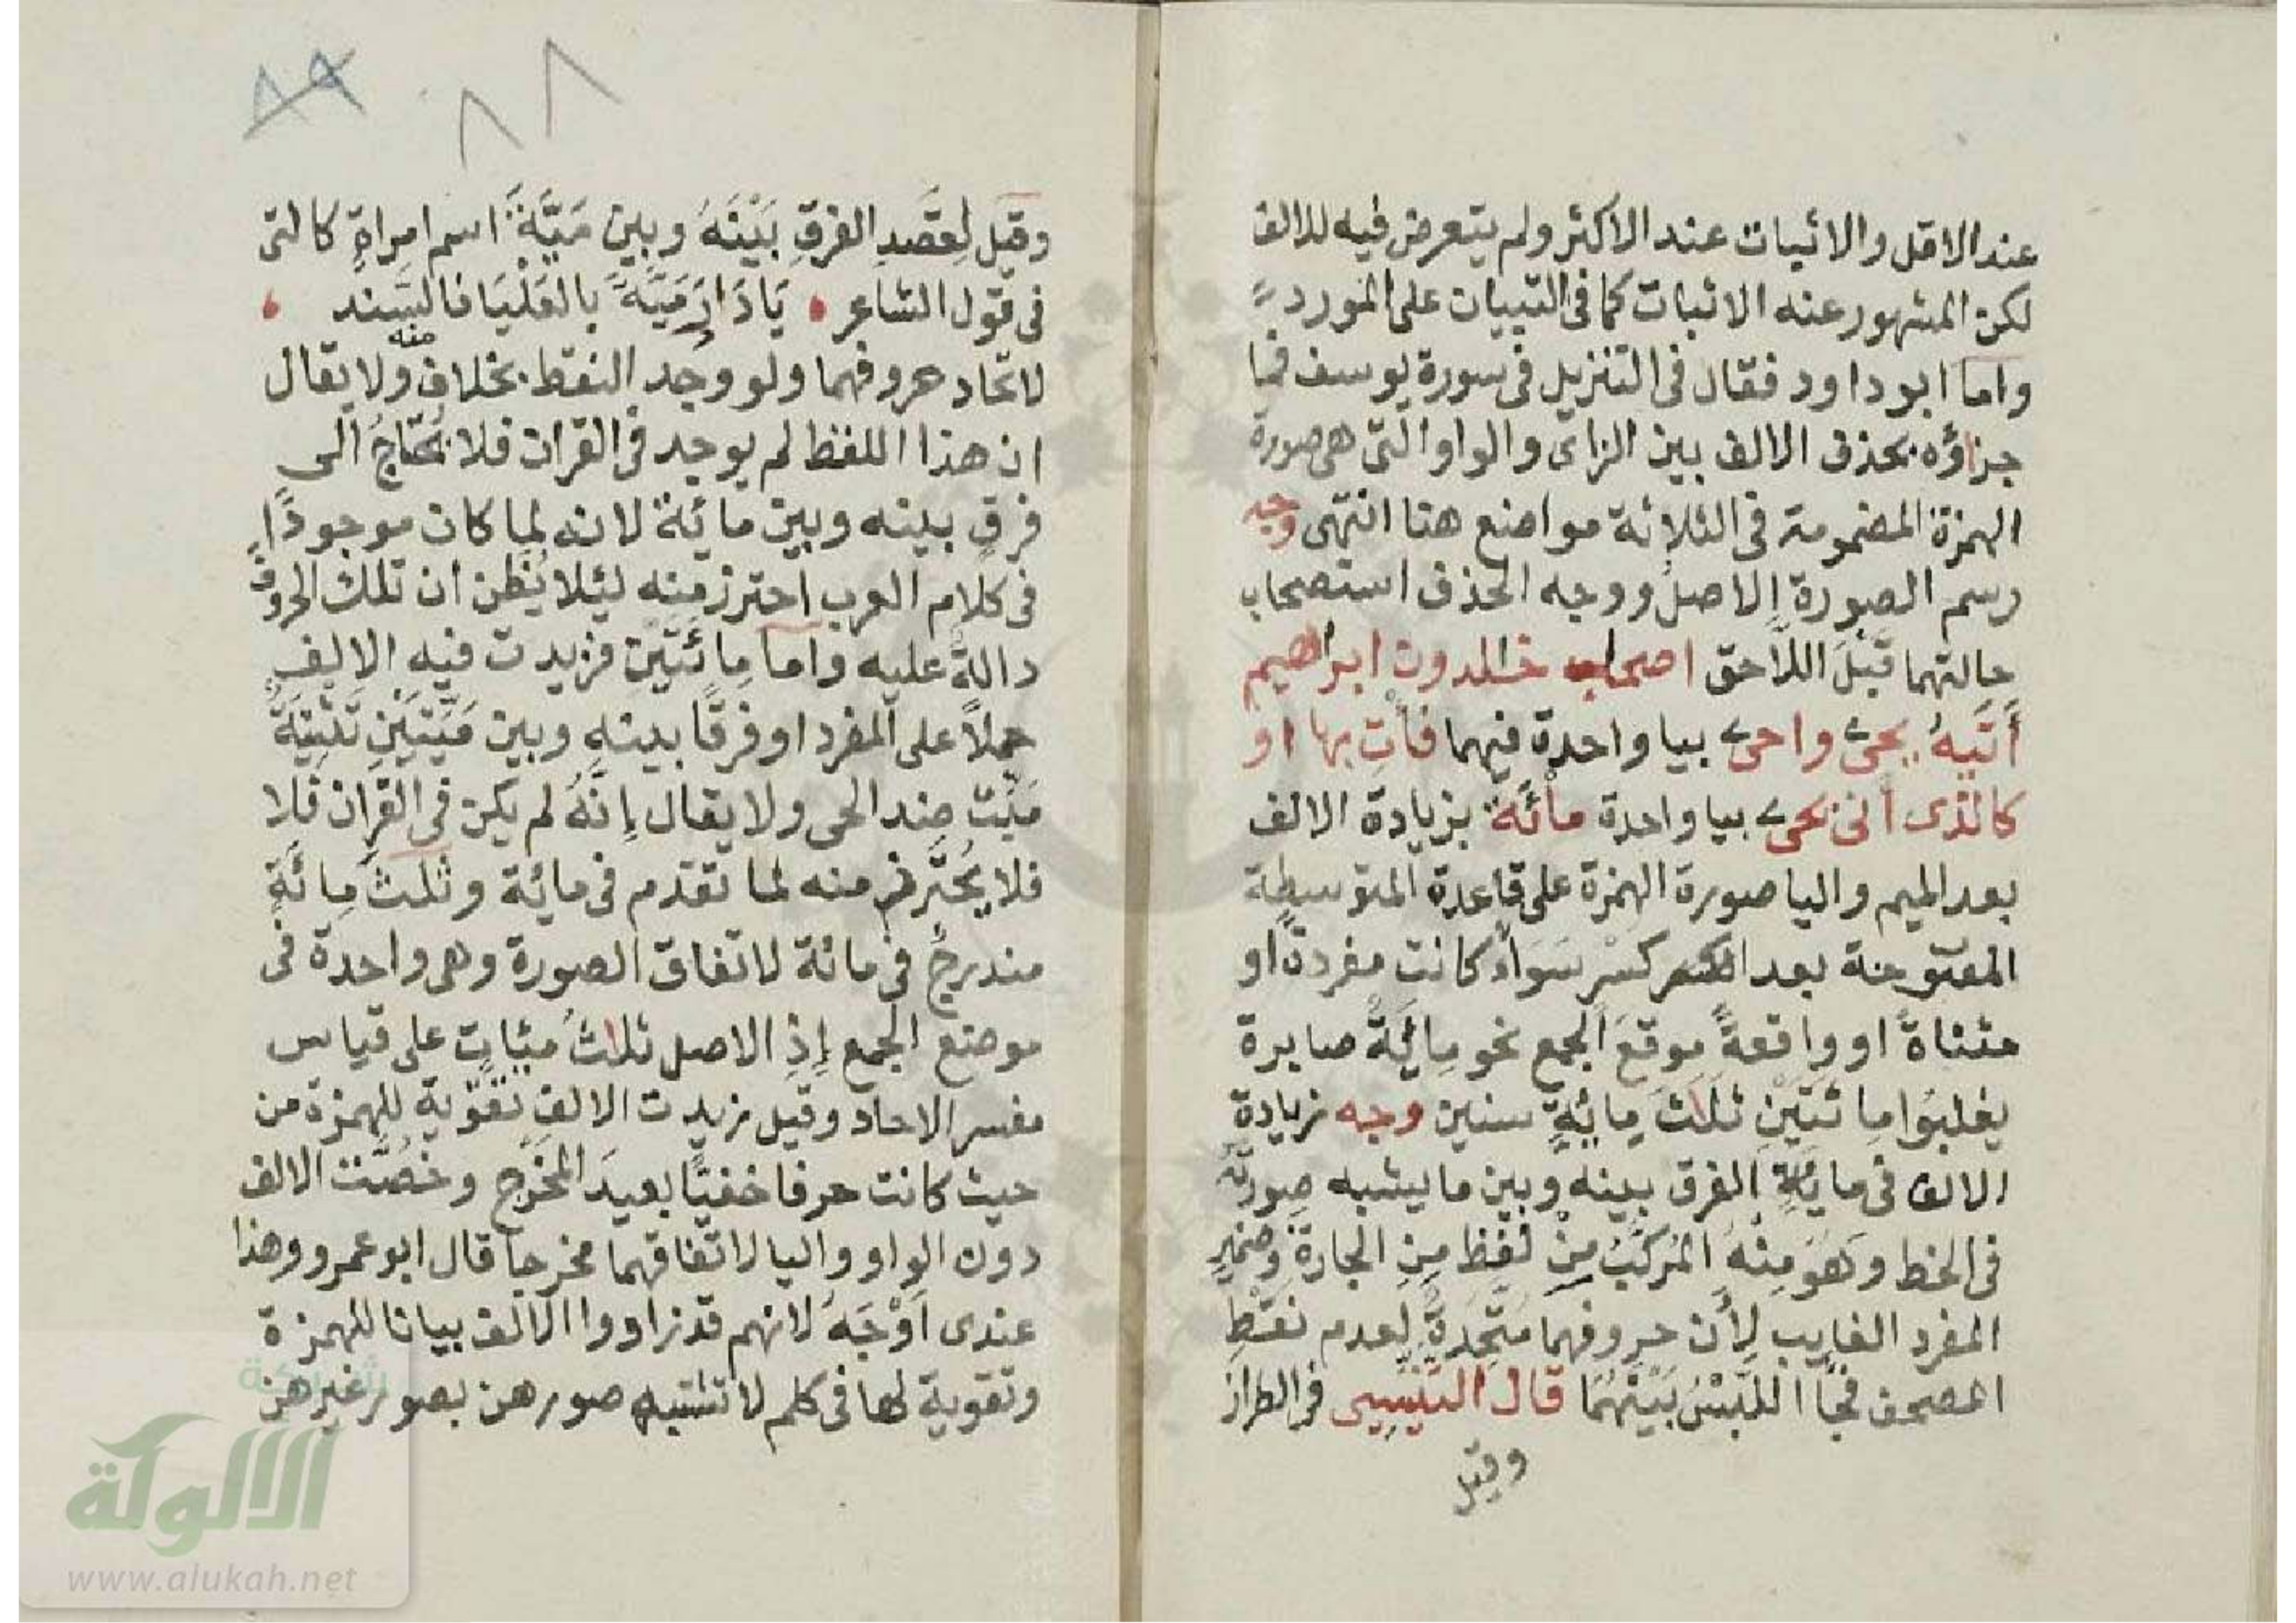 عند الاقل والاثبات عند الاكثر ولم يتعرض فيه للالف
لكن المشهور عنه الاثبات كما فى التبيان على المورد
واما ابو داود فقال فى التنزيل فى سورة يوسف فما
جزاؤه بحذف الالف بين الزاى والواو التى هى صورة
الهمزة المضمومة فى الثلاثة مواضع هنا انتهى وجه
رسم الصورة الاصل ووجه الحذف استصحاب
حالتهما قَبْلَ اللاحق اصحاب خالدون ابراهيم
أَتَيهُ يحىۦ واحىۦ بيا واحدة فيهما فأتِ بها او
كالذى أنى يحىۦ بيا واحدة مائَة بزيادة الالف
بعد الميم واليا صورة الهمزة على قاعدة المتوسطة
المفتوحة بعد كسْرٍ سَوَاءً كانت مفردة او
مثناةً او واقعةً موقعَ الجمع نحو مِائَةٌ صابرة
يغلبُوا مِائَتَيْنِ ثلاثَ مِائَةٍ سنين وجه زيادة
الالف فى مائةٍ الفرق بينه وبين ما يشبه صورته
فى الخط وَهُوَ مِنْهُ المُركَّبُ مِنْ لفظ مِنِ الجارة وضميرِ
المفرد الغايب لِأن حروفهما مُتَّحِدَةٌ لِعدم نَقْطِ
المصحف فجَا اللَّبْسُ بَيْنَهُمَا قال التَّنَسِى فى الطراز
وقيل
٨٨
٨٩
وقيل لِقَصْدِ الفرقِ بَيْنَهُ وبين مَيَّةَ اسم امراةٍ كالتى
فى قول الشاعر يَا دَارَ مَيَّةَ بالعَلْيَا فالسَّند
لاتحاد حروفهما ولو وُجد النقط بخلاف منه ولا يقال
ان هذا اللفظ لم يوجد فى القران فلا نُحْتَاجُ الى
فرقٍ بينه وبين مائة لانه لما كان موجودًا
فى كلام العرب احترز منه ليئلا يُظن ان تلك الحروفَ
دالةٌ عليه واما مِائَتَيْن فزيدت فيه الالِف
حملاً على المفرد او فرقًا بينهِ وبين مَيِّتَيْنِ تَثْنِيَةُ
مَيِّت ضِد الحى ولا يقال إِنَّهُ لم يكن فى القران فلا
فلا يُحْتَرز منه لما تقدم فى مائة وثلثَ مِائَةٍ
مندرجٌ فى مائة لاتفاق الصورة وهى واحدة فى
موضع الجمع إِذِ الاصل ثلاثُ مِئاتٍ على قياس
مفسر الاحاد وقيل زيدت الالفُ تقْوِيةً للهمزة من
حيث كانت حرفا خفيًّا بعيدَ المَخرَج وخصَّت الالف
دون الواو واليا لاتفاقهما مخرجا قال ابو عمرو وهذا
عندى أَوْجَهُ لانهم قد زاووا الالف بيانا للهمزة
وتقوية لها فى كلم لا تشتبه صورهن بصور غيرهن
شبكة
الألوكة
www.alukah.net